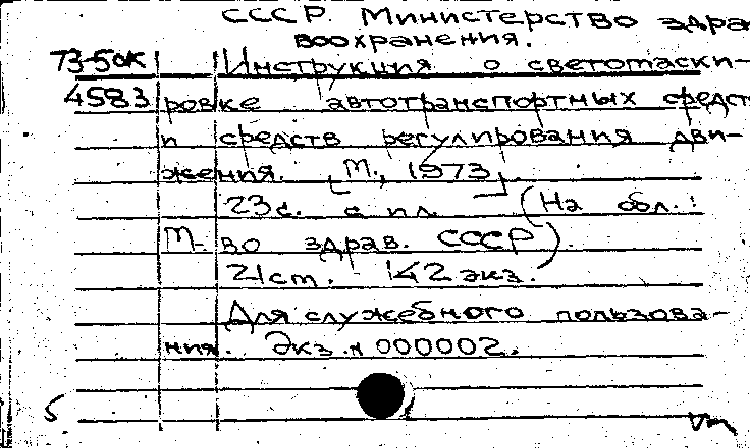 СССР. Министерство здра-
воохранения.
73-50к Инструкция о светомаски-
4583 ровке автотранспортных средст
и средств регулирования дви-
жения. [М., 1973]
23с. с ил. (На обл.:
М-во здрав. СССР).
21см. 142 экз.
Для служебного пользова-
ния. Экз. № 000002.
5